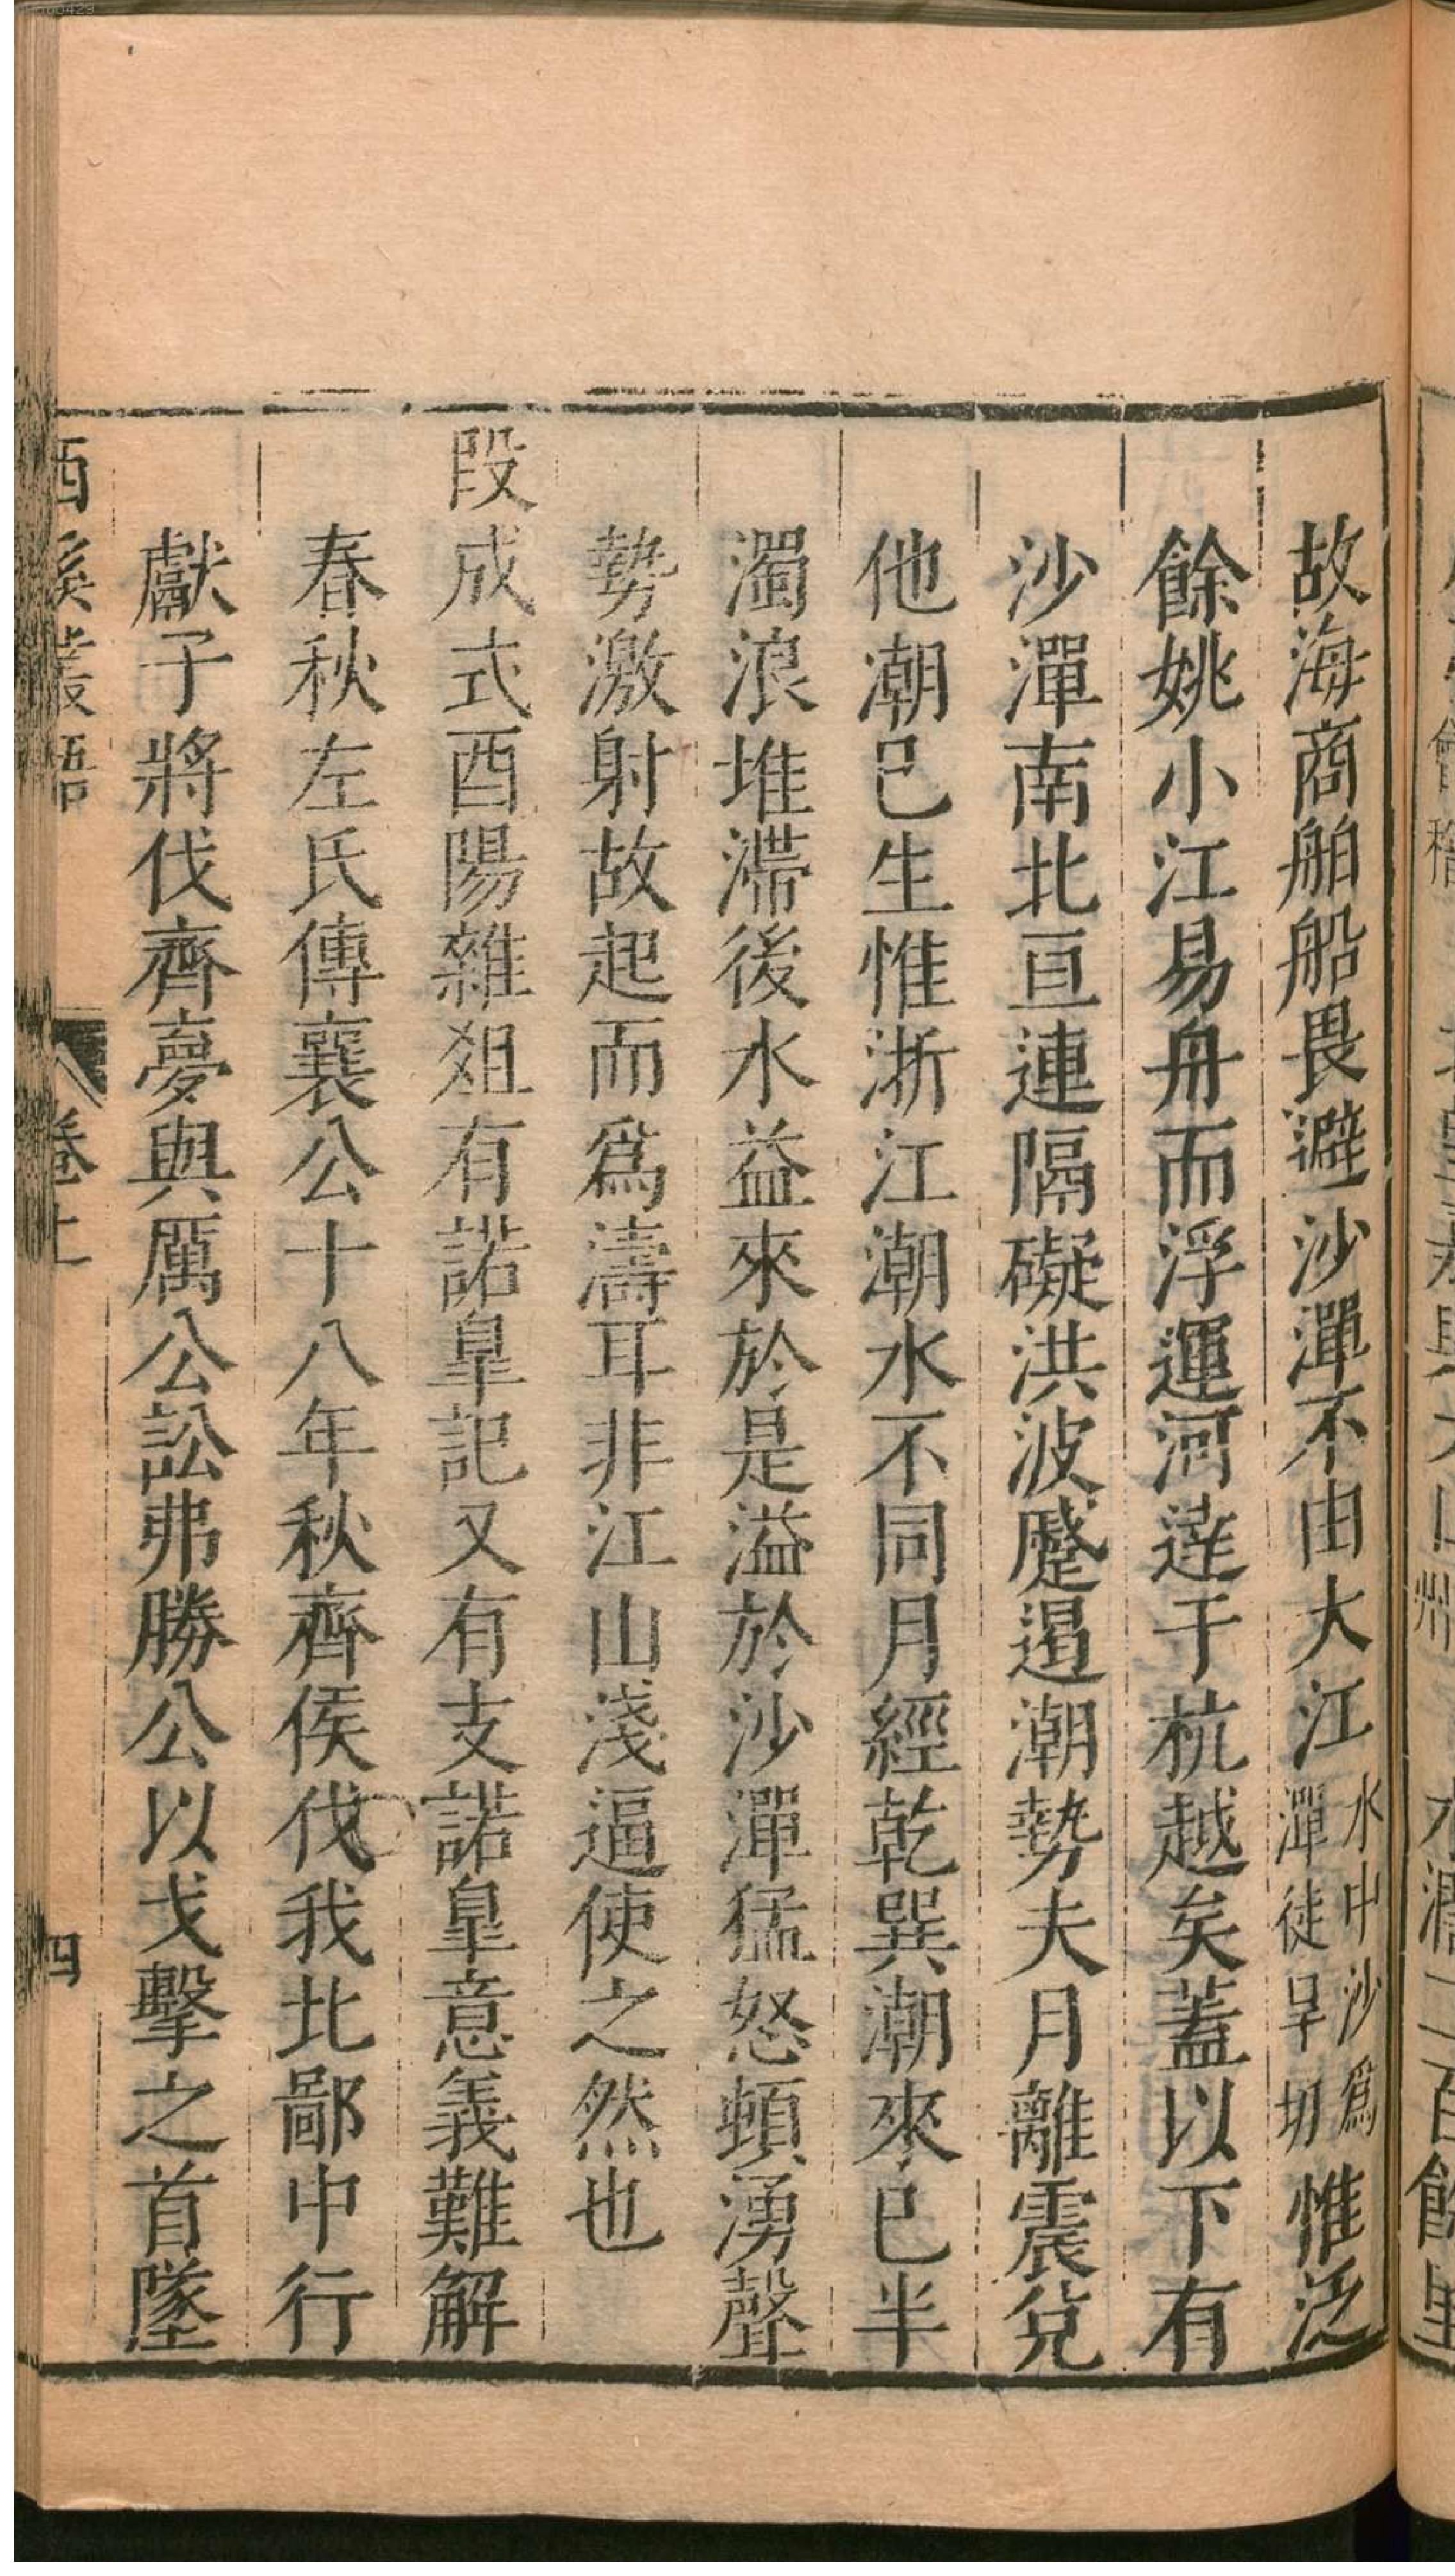 故海商舶船畏避沙潬不由大江水中沙爲潬徒旱切惟泛
餘姚小江易舟而浮運河達于杭越矣蓋以下有
沙潬南北亘連隔礙洪波蹙遏潮勢夫月離震兌
他潮已生惟浙江潮水不同月經乾巽潮來已半
濁浪堆滯後水益來於是溢於沙潬猛怒頓湧聲
勢激射故起而爲濤耳非江山淺逼使之然也
段成式酉陽雜俎有諾皐記又有支諾皐意義難解
春秋左氏傳襄公十八年秋齊侯伐我北鄙中行
獻子將伐齊夢與厲公訟弗勝公以戈擊之首墜
西溪叢語 卷上 四